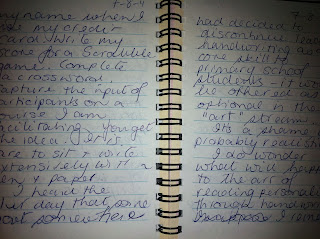 7-8-11
my name when I
use my credit
card. Write my
score for a Scrabble
game. Complete
a crossword.
Capture the input of
participants on a
course I am
facilitating. You get
the idea. It is
rare to sit & write
extensively with a
pen & paper.
I heard the
other day that some
most somewhere
7-8
had decided to
discontinue teach
handwriting as a
core skill to
primary school
students. It will
be offered as
optional in the
"art" stream
Its a shame,
probably realistic
I do wonder
what will happ
to the art of
reading personali
through handwri
I some